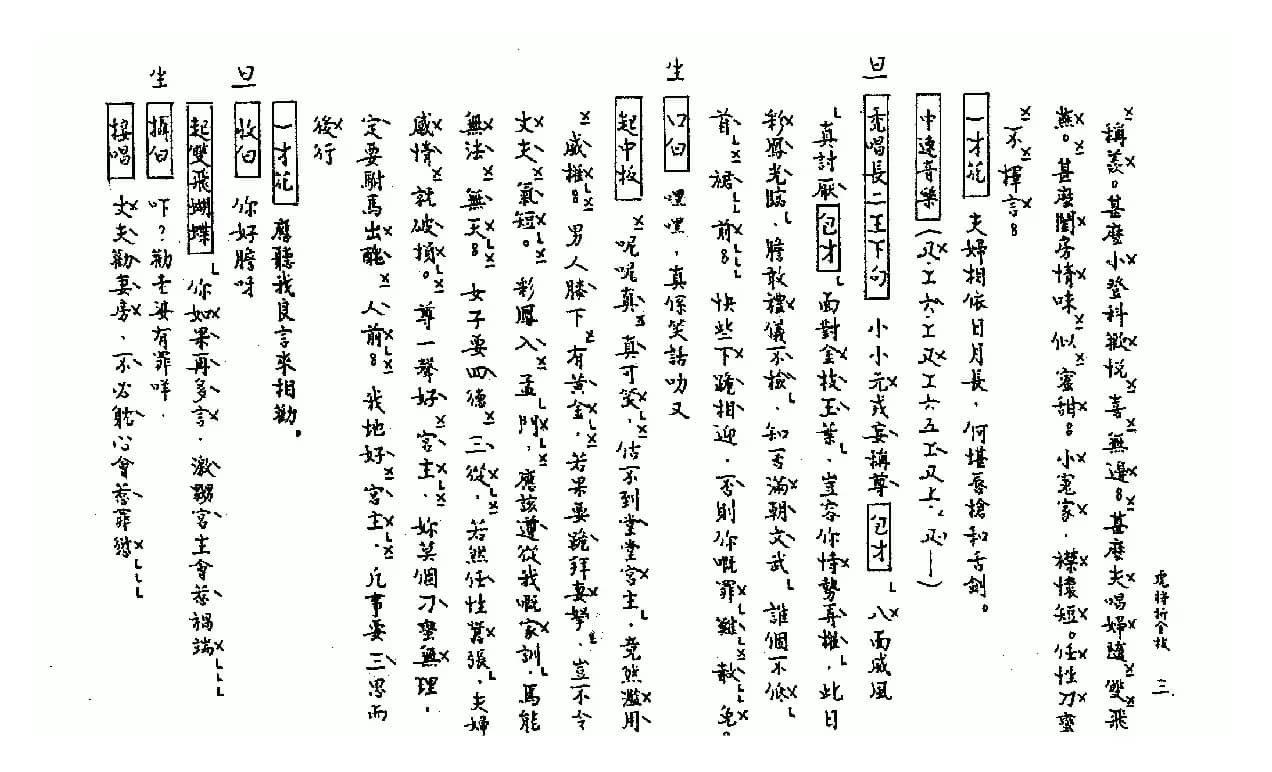 虎將折金枝 三
稱羨。甚麼小登科歡悦,喜無邊。甚麼夫唱婦隨,雙飛
燕。甚麼閨房情味,似蜜甜。小冤家,襟懷短。任性刀蠻
不揮言。
一才花 夫婦相依日月長,何堪唇槍和舌劍。
中速音樂(又工六.工又工六五工又上.又一)
旦 禿唱長二王下句 小小元戎妄稱尊 包才 八面威風
真討厭 包才 面對金枝玉葉,豈容你恃勢弄權,此日
彩鳳光臨,膽敢禮儀不檢,知否滿朝文武,誰個不低
首,裙前。快些下跪相迎,否則你嘅罪難赦免。
生 口白 嘿嘿,真係笑話叻又
起中板 呢呢真,真可笑,估不到堂堂宮主,竟然濫用
威權。男人膝下有黃金,若果要跪拜妻孥,豈不令
丈夫氣短。彩鳳入孟門,應該遵從我嘅家訓,焉能
無法無天。女子要四德三從,若然任性囂張,夫婦
感情就破損。尊一聲好宮主,妳莫個刀蠻無理,
定要駙馬出醜人前。我地好宮主,凡事要三思而
後行
一才花 應聽我良言來相勸。
旦 收白 你好膽呀
起雙飛蝴蝶 你如果再多言,激嬲宮主會惹禍端
生 攝白 吓?勸老婆有罪咩.
接唱 丈夫勸妻房,不必耽心會惹罪愆